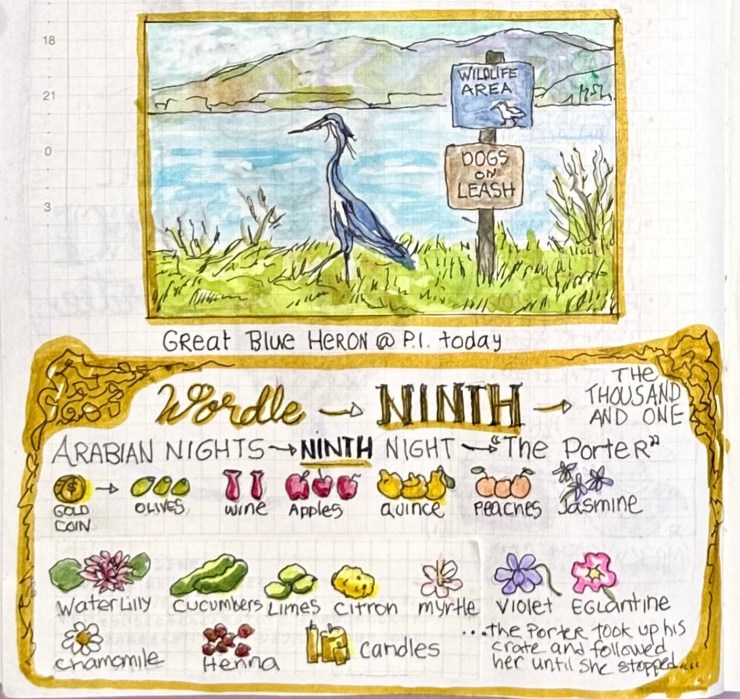 18
21
0
3
WILDLIFE
AREA
DOGS
ON
LEASH
Great Blue HERON @ P.I. today
Wordle → NINTH → THE
THOUSAND
AND ONE
ARABIAN NIGHTS → NINTH NIGHT → "The Porter"
GOLD
COIN
→ OLIVES wine Apples quince Peaches Jasmine
Water Lilly Cucumbers Limes Citron myrtle Violet Eglantine
Chamomile Henna Candles
...the Porter took up his
crate and followed
her until she stopped....